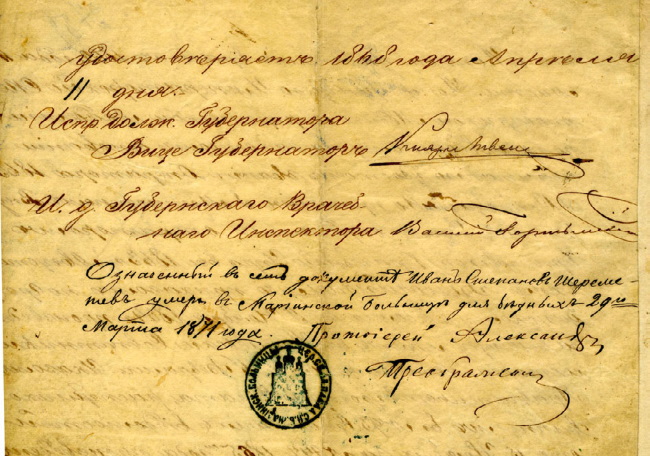 удостовѣряетъ 1868 года Апрѣля
11 дня.
Испр. Долж. Губернатора
Вице Губернаторъ
И. д. Губернскаго Врачеб
наго Инспектора Василий
Означенный въ семъ документѣ Иванъ Степановъ Шереме-
тевъ умеръ въ Маріинской больницѣ для бѣдныхъ 29го
Марта 1871 года. Протоіерей Александръ
Преображенскій